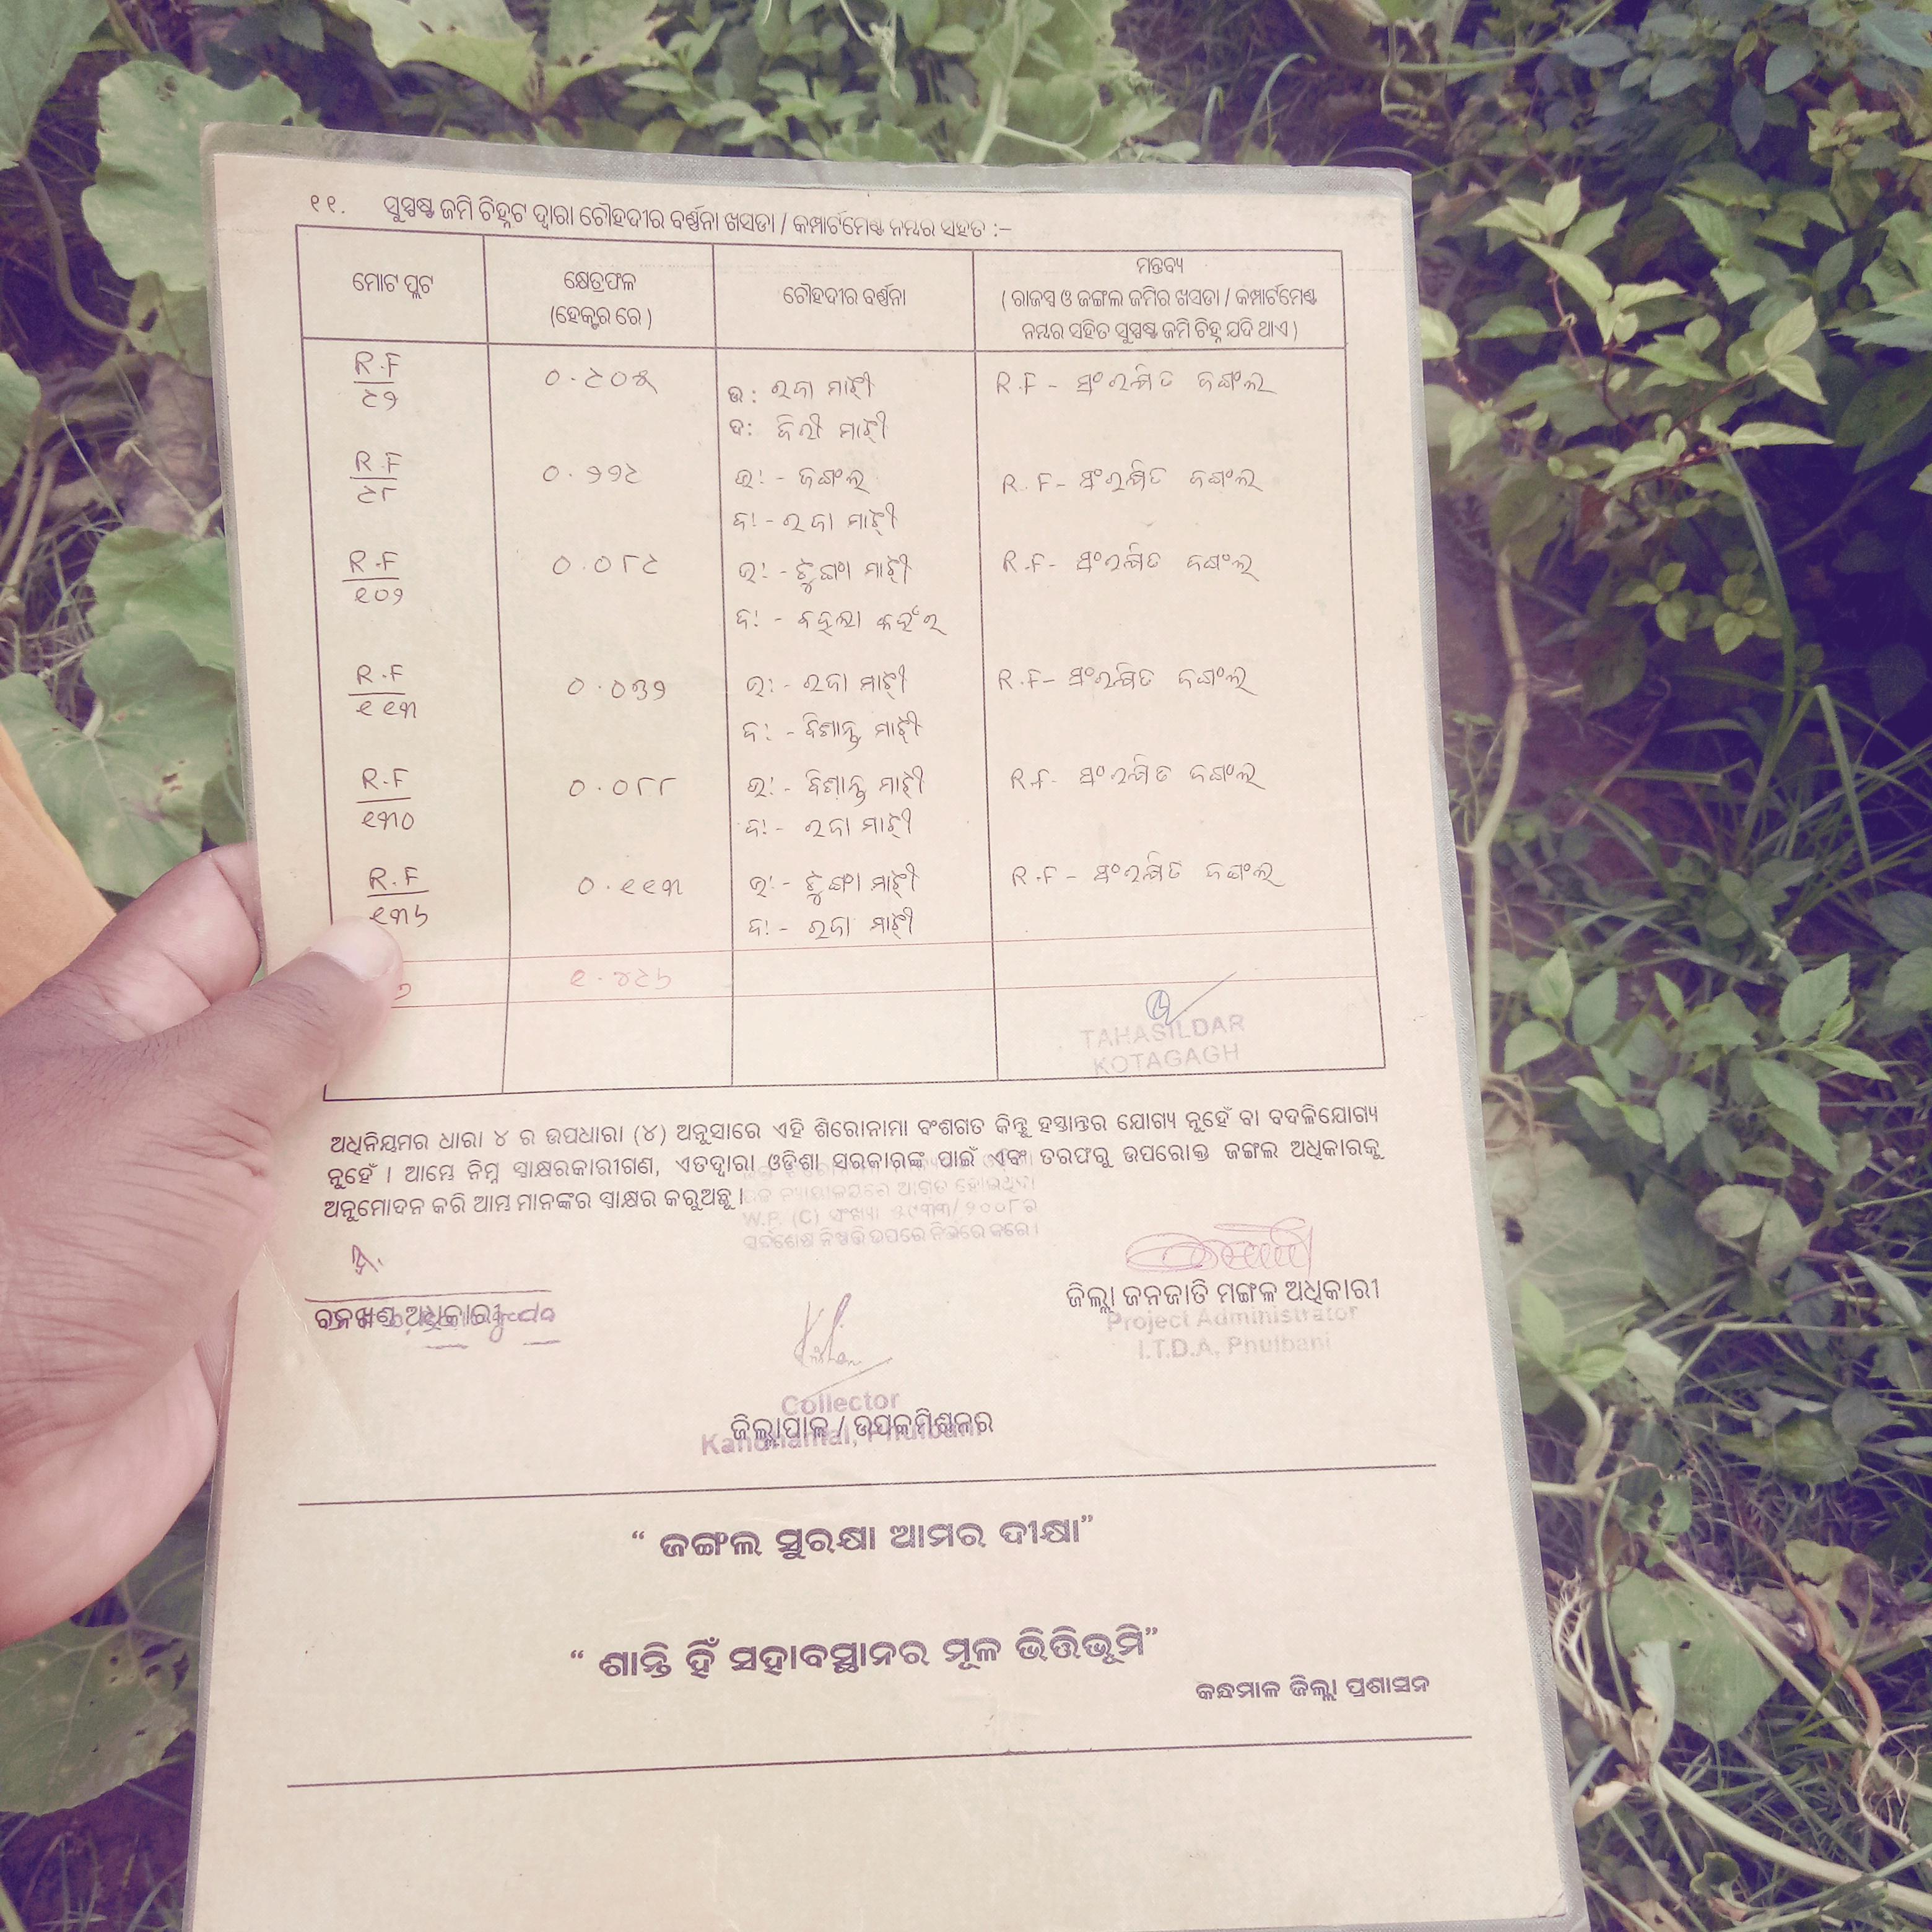 ୧୧. ସୁସ୍ପଷ୍ଟ ଜମି ଚିହ୍ନଟ ଦ୍ୱାରା ଚୌହଦୀର ବର୍ଣ୍ଣନା ଖସଡା / କମ୍ପାର୍ଟମେଣ୍ଟ ନମ୍ବର ସହତ :–
ମୋଟ ପ୍ଲଟ
କ୍ଷେତ୍ରଫଳ
(ହେକ୍ଟର ରେ)
ଚୌହଦୀର ବର୍ଣ୍ଣନା
ମନ୍ତବ୍ୟ
( ରାଜସ୍ୱ ଓ ଜଙ୍ଗଲ ଜମିର ଖସଡା / କମ୍ପାର୍ଟମେଣ୍ଟ
ନମ୍ବର ସହିତ ସୁସ୍ପଷ୍ଟ ଜମି ଚିହ୍ନ ଯଦି ଥାଏ )
R.F ୦.୯୦୫ ଉ: ରଜା ମାଝୀ R.F - ସଂରକ୍ଷିତ ଜଙ୍ଗଲ
୯୨ ଦ: ମାଝୀ
R.F ୦.୨୨୯ ଉ: - ଜଙ୍ଗଲ R.F - ସଂରକ୍ଷିତ ଜଙ୍ଗଲ
୯୮ ଦ: - ରଜା ମାଝୀ
R.F ୦.୦୮୯ ଉ: - ମାଝୀ R.F - ସଂରକ୍ଷିତ ଜଙ୍ଗଲ
୧୦୨ ଦ: - କହଁର
R.F ୦.୦୩୨ ଉ: - ରଜା ମାଝୀ R.F - ସଂରକ୍ଷିତ ଜଙ୍ଗଲ
୧୧୩ ଦ: - ମାଝୀ
R.F ୦.୦୮୮ ଉ: - ମାଝୀ R.F - ସଂରକ୍ଷିତ ଜଙ୍ଗଲ
୧୩୦ ଦ: - ରଜା ମାଝୀ
R.F ୦.୧୧୩ ଉ: - ମାଝୀ R.F - ସଂରକ୍ଷିତ ଜଙ୍ଗଲ
୧୩୬ ଦ: - ରଜା ମାଝୀ
୧.୪୯୬
TAHASILDAR
KOTAGAGH
ଅଧିନିୟମର ଧାରା ୪ ର ଉପଧାରା (୪) ଅନୁସାରେ ଏହି ଶିରୋନାମା ବଂଶଗତ କିନ୍ତୁ ହସ୍ତାନ୍ତର ଯୋଗ୍ୟ ନୁହେଁ ବା ବଦଳିଯୋଗ୍ୟ
ନୁହେଁ । ଆମ୍ଭେ ନିମ୍ନ ସ୍ୱାକ୍ଷରକାରୀଗଣ, ଏତଦ୍ୱାରା ଓଡ଼ିଶା ସରକାରଙ୍କ ପାଇଁ ଏବଂ ତରଫରୁ ଉପରୋକ୍ତ ଜଙ୍ଗଲ ଅଧିକାରକୁ
ଅନୁମୋଦନ କରି ଆମ୍ଭ ମାନଙ୍କର ସ୍ୱାକ୍ଷର କରୁଅଛୁ ।
W.P. (C) ସଂଖ୍ୟା
ଉପରେ ନିର୍ଭରେ କରେ ।
ବନଖଣ୍ଡ ଅଧିକାରୀ
ଜିଲ୍ଲା ଜନଜାତି ମଙ୍ଗଳ ଅଧିକାରୀ
Project Administrator
I.T.D.A, Phulbani
Collector
ଜିଲ୍ଲାପାଳ / ଉପକମିଶନର
Kandhamal, Phulbani
“ ଜଙ୍ଗଲ ସୁରକ୍ଷା ଆମର ଦୀକ୍ଷା”
“ ଶାନ୍ତି ହିଁ ସହାବସ୍ଥାନର ମୂଳ ଭିତ୍ତିଭୂମି”
କନ୍ଧମାଳ ଜିଲ୍ଲା ପ୍ରଶାସନ